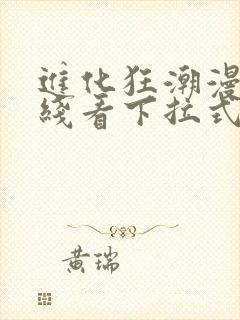 進化狂潮漫
綫看下拉式
黄瑞